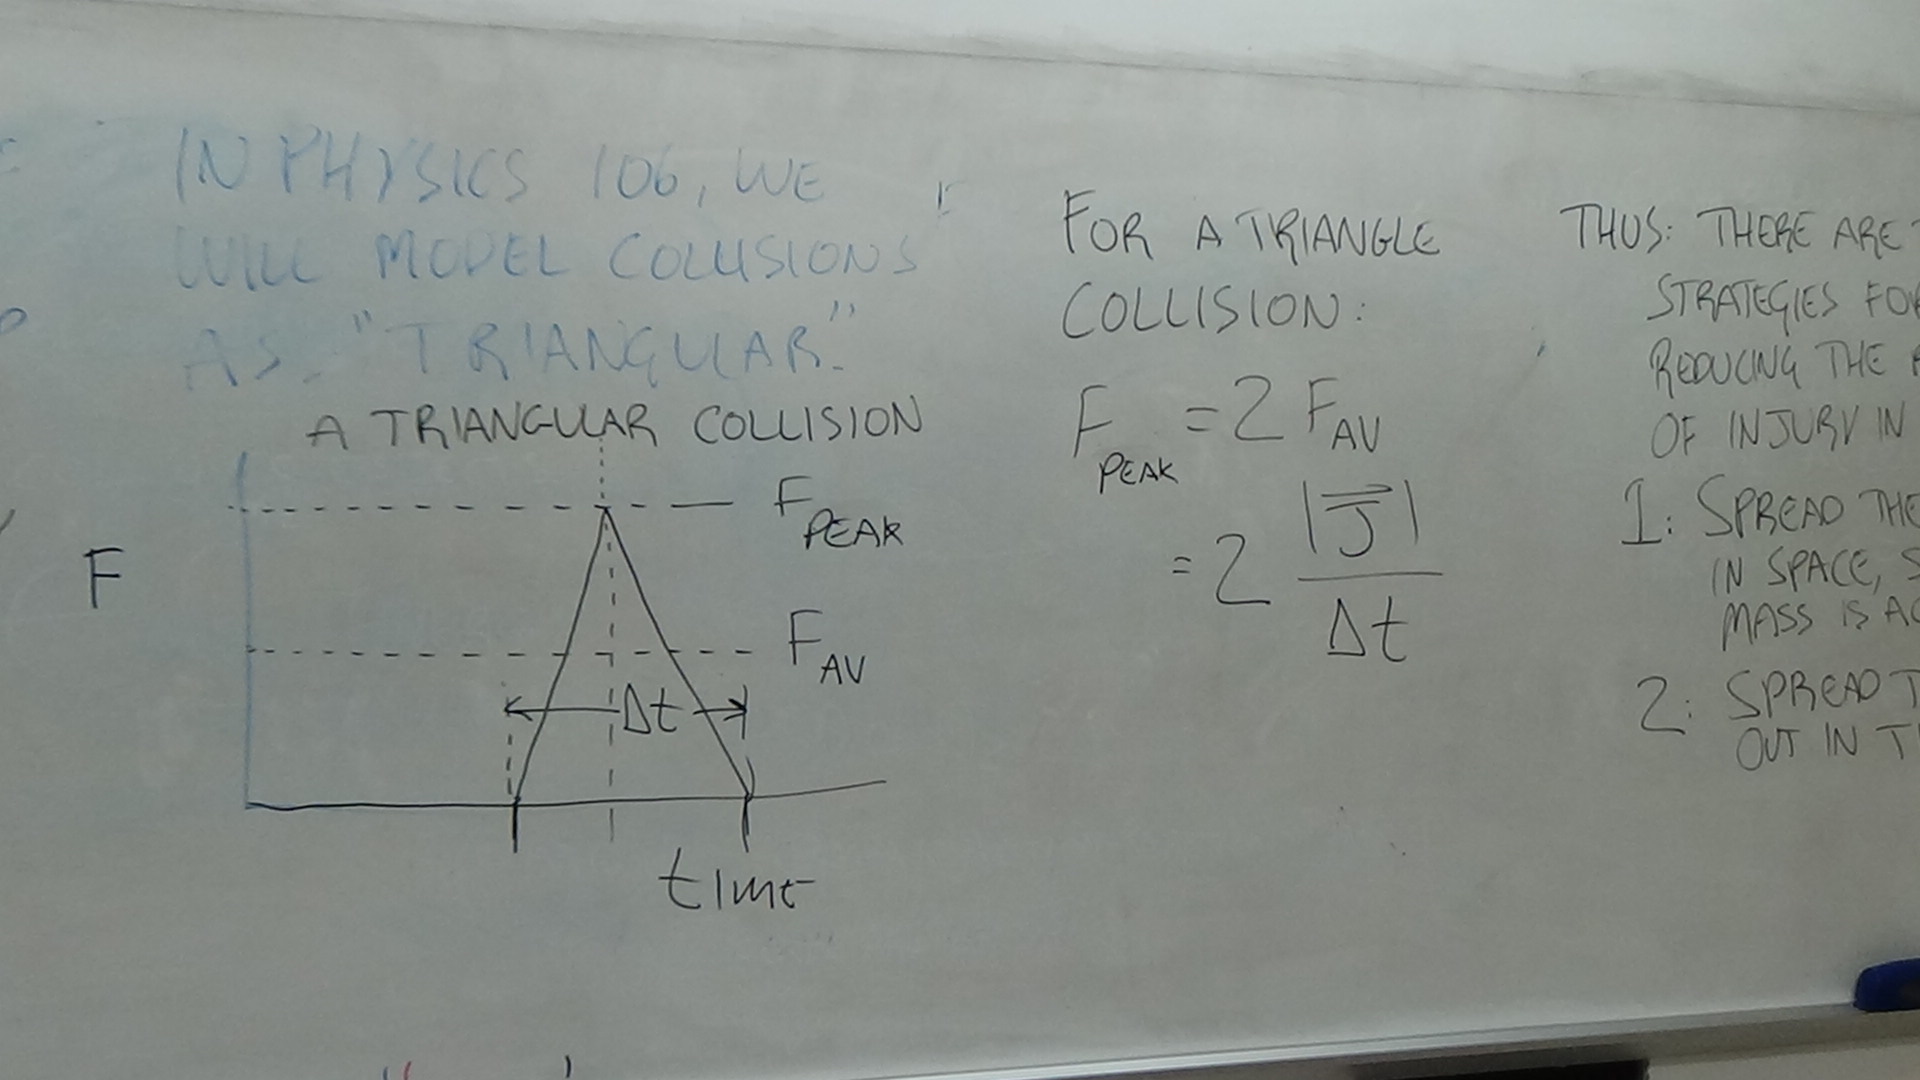 IN PHYSICS 106, WE
WILL MODEL COLLISIONS
AS "TRIANGULAR."
A TRIANGULAR COLLISION
F
F PEAK
F AV
Δt
time
FOR A TRIANGLE
COLLISION:
F PEAK = 2 F AV
= 2 |J⃗| / Δt
THUS: THERE ARE
STRATEGIES FOR
REDUCING THE
OF INJURY IN
1: SPREAD THE
IN SPACE,
MASS IS
2: SPREAD
OUT IN